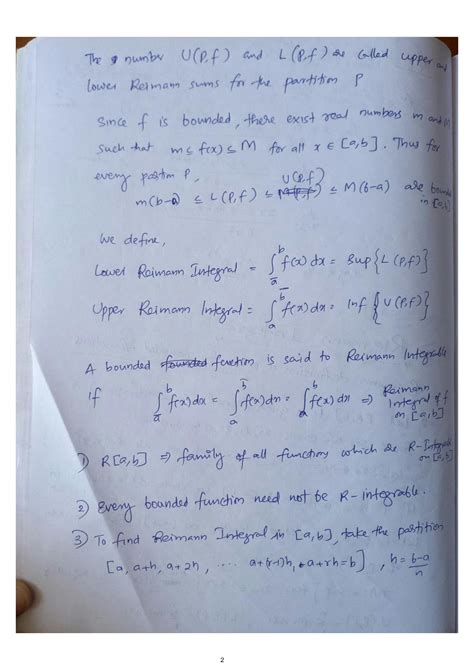 The number U(P,f) and L(P,f) are called upper and
lower Reimann sums for the partition P
Since f is bounded, there exist real numbers m and M
such that m ≤ f(x) ≤ M for all x ∈ [a,b]. Thus for
every partn P,
m(b-a) ≤ L(P,f) ≤ U(P,f) ≤ M(b-a) are bounded
in [a,b]
We define,
Lower Reimann Integral = ∫_a̲^b f(x) dx = Sup{L(P,f)}
Upper Reimann Integral = ∫_a^b̄ f(x) dx = Inf{U(P,f)}
A bounded function is said to Reimann Integrable
if ∫_a̲^b f(x) dx = ∫_a^b̄ f(x) dx = ∫_a^b f(x) dx ⇒ Reimann
Integral of f
on [a,b]
1) R[a,b] ⇒ family of all functions which are R-Integrable
on [a,b]
2) Every bounded function need not be R-integrable.
3) To find Reimann Integral in [a,b], take the partition
[a, a+h, a+2h, .... a+(r-1)h, a+rh=b], h = b-a/n
2